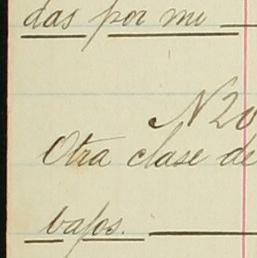 das por mi
N 20
Otra clase de
bajos.